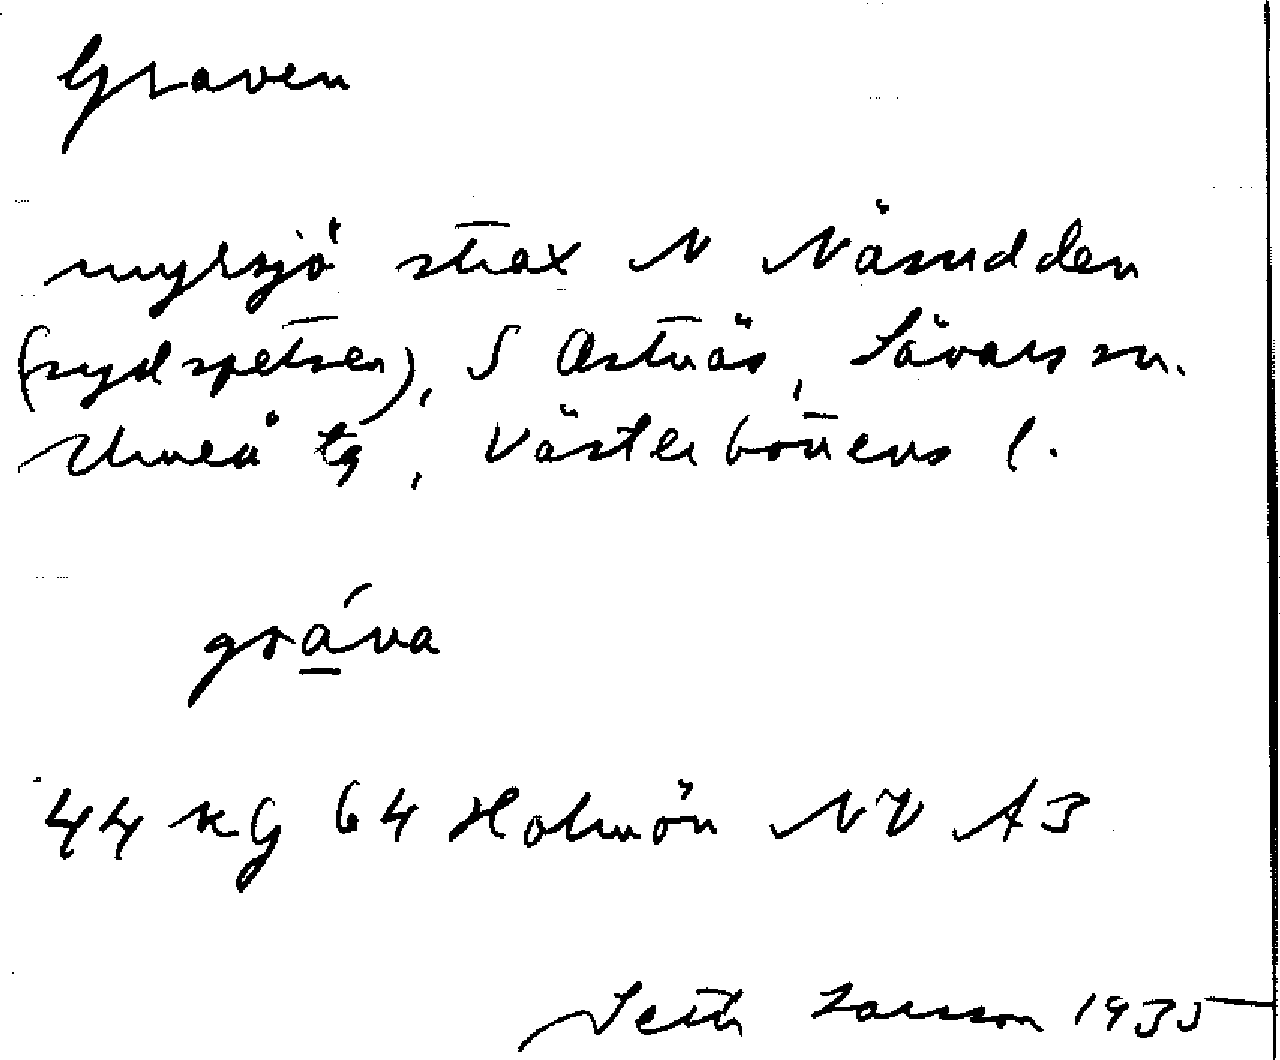 Graven
myrsjö strax N Näsudden
(sydspetsen), S Ostnäs, Sävars sn.
Umeå tg, Västerbottens l.
gráva
44 KG 64 Holmön NV A3
Seth Larsson 1935